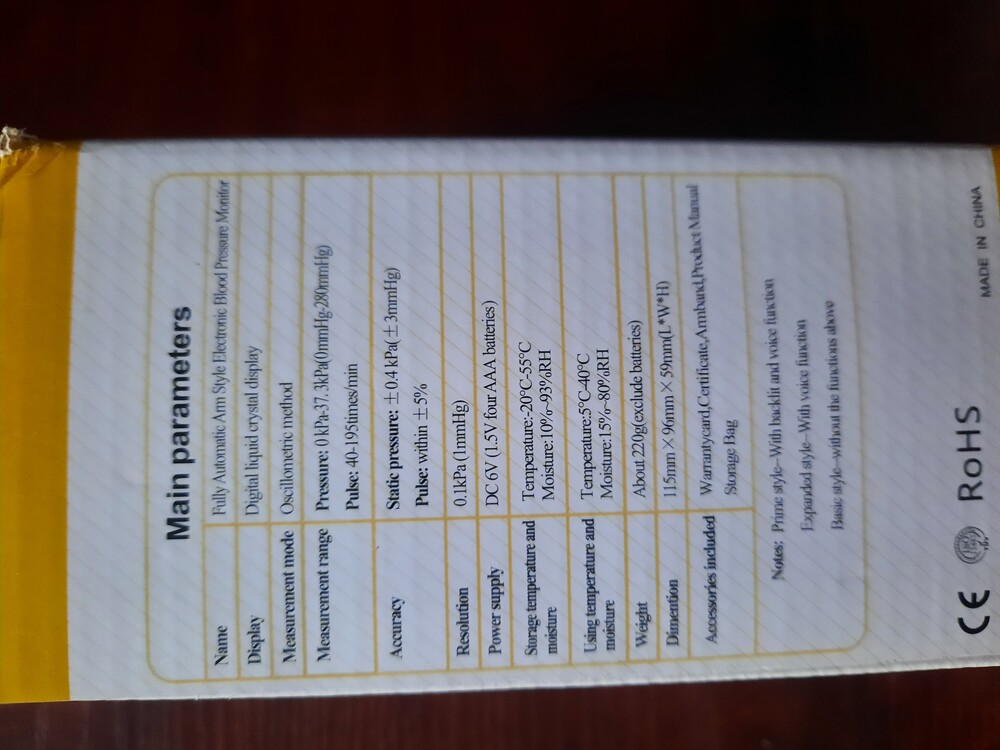 Main parameters
Name Fully Automatic Arm Style Electronic Blood Pressure Monitor
Display Digital liquid crystal display
Measurement mode Oscillometric method
Measurement range Pressure: 0 kPa-37.3kPa(0mmHg-280mmHg)
Pulse: 40-195times/min
Accuracy Static pressure: ±0.4 kPa(±3mmHg)
Pulse: within ±5%
Resolution 0.1kPa (1mmHg)
Power supply DC 6V (1.5V four AAA batteries)
Storage temperature and Temperature:-20°C-55°C
moisture Moisture:10%~93%RH
Using temperature and Temperature:5°C-40°C
moisture Moisture:15%~80%RH
Weight About 220g(exclude batteries)
Dimention 115mm×96mm×59mm(L*W*H)
Accessories included Warrantycard,Certificate,Armband,Product Manual
Storage Bag
Notes: Prime style--With backlit and voice function
Expanded style--With voice function
Basic style--without the functions above
CE RoHS MADE IN CHINA